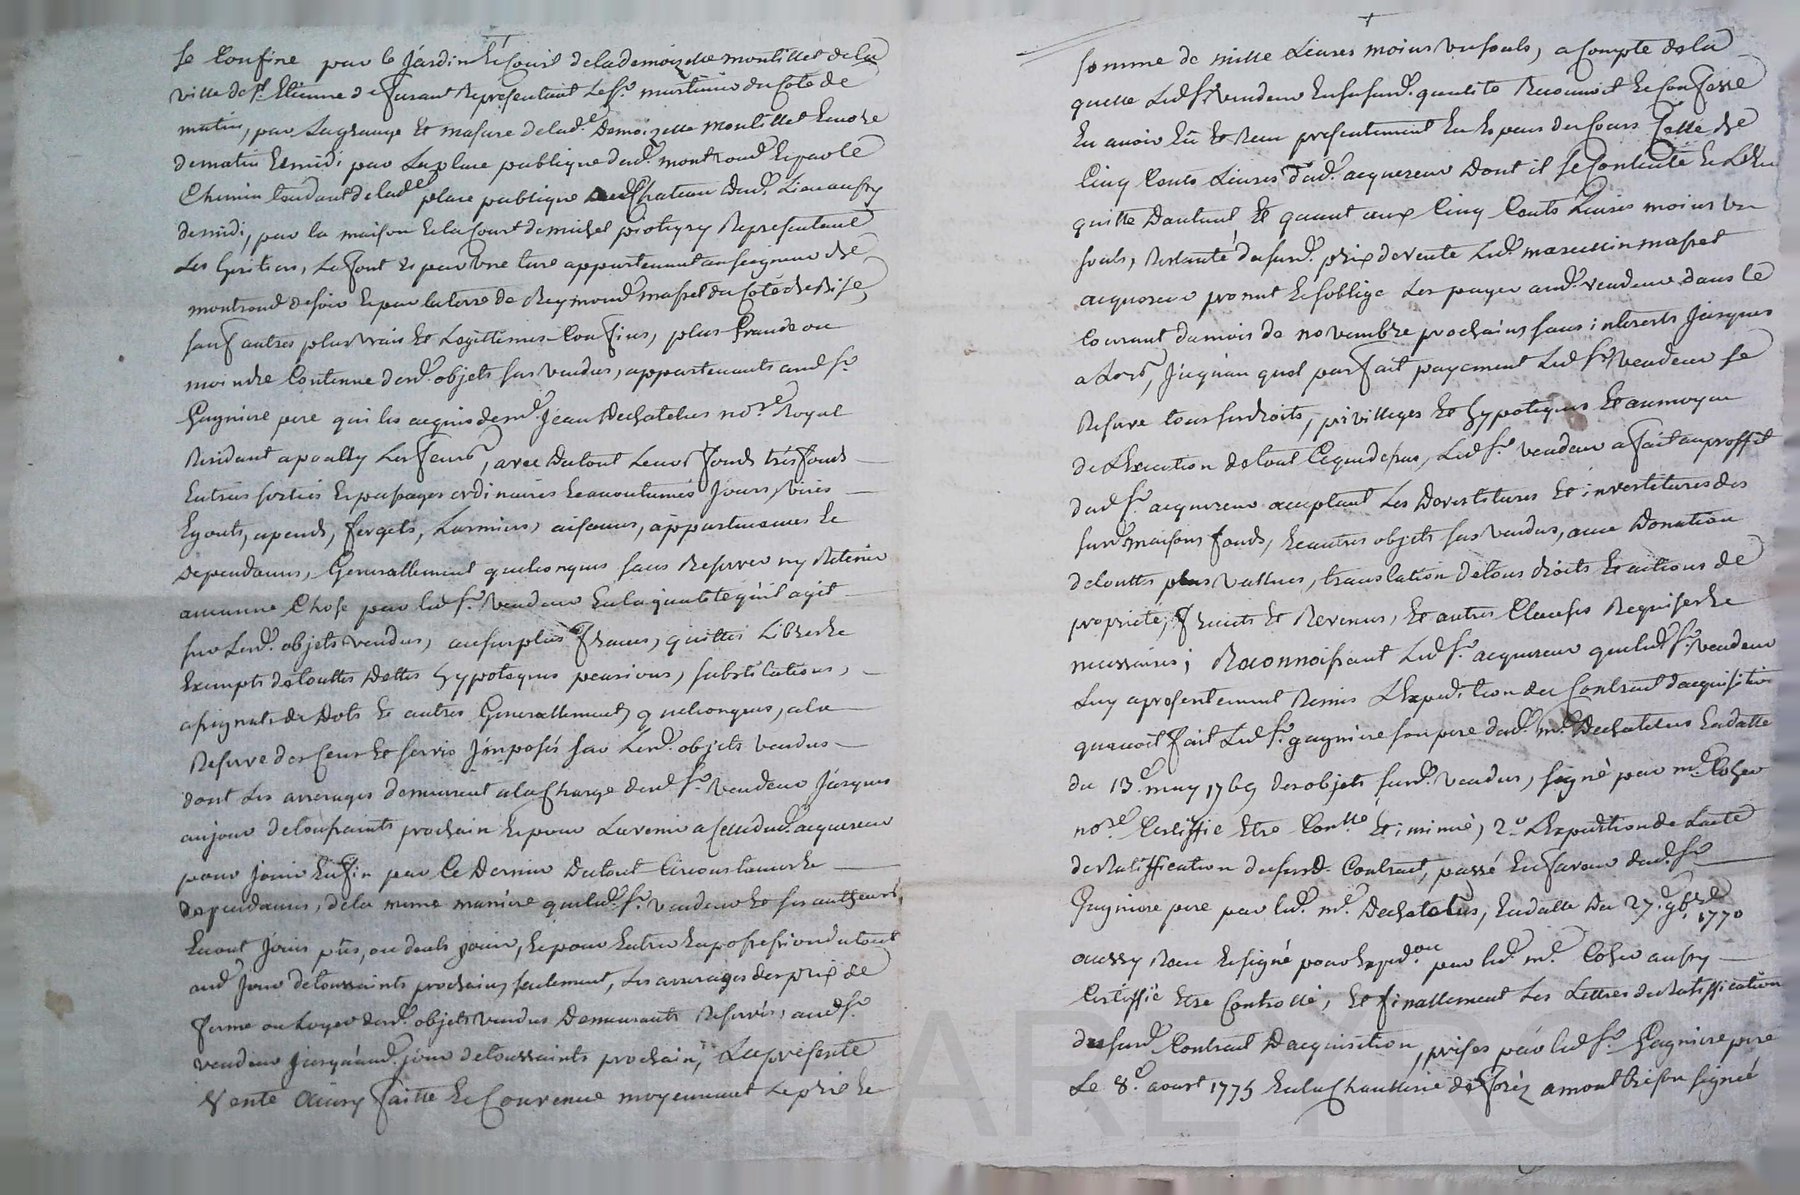 se Confine par le Jardin et Court de lademoizelle montillet de la
ville de St. Etienne de furant Representant le Sr. du Cote de
matin, par la grange et masure de lade. Demoizelle montillet Encore
de matin et midi par la place publique dud. montrond et par le
Chemin tendant de lade place publique au Chateau dud. Lieu aussy
de midi, par la maison et la Court de michel Representant
Les heritiers, Le font et par une terre appartenant au seigneur de
montrond de soir et par la terre de Reymond masset du Coté de Bise,
sauf autres plus vrais et Legittimes Confins, plus Grande ou
moindre Contenue desd. objets sus vendus, appartenants aud Sr.
Gagniere pere qui les acquis de me. Jean Dechatelus nore. Royal
Residant a pouilly Les feurs, avec Dutout Leurs fonds tres fonds
Entrées sorties et passages ordinaires et accoutumés Jours, vües
Egouts, apends, forgets, Larmiers, aisances, appartenances et
dependances, Generallement quelconques sans Reserver ny Retenir
aucunne Chose par led Sr. Vendeur En la qualité qu'il agit
sur Lesd. objets vendus, au surplus francs, quittes Libres et
Exempts de touttes Dettes hypoteques pensions, substitutions,
assignats de Dots et autres Generallement quelconques, a la
Reserve des Cens et servis Jmposés sur Lesd. objets vendus
dont Les arrerages demeurent a la Charge dud Sr. Vendeur Jusques
au jour de toussaints prochain et pour Lavenir a Celle dud. acquereur
pour jouir Enfin par Ce Dernier Dutout Circonstances et
dependances, de la meme maniere que led. Sr. vendeur et ses autheurs
En ont Joüis pus, ou deub joüir, et pour Entrer En possession du tout
aud Jour de toussaints prochain seulement, Les arrerages des prix de
ferme ou Loyer desd. objets vendus Demeurants Reservés, aud Sr.
vendeur Jusqu'aud. jour de toussaints prochain, La presente
Vente Ainsy faitte et Convenue moyennant Le prix et
somme de mille Livres moins un souls, a Compte de la
quelle Led Sr. vendeur En sa surd. qualité Reconnoit et Confesse
En avoir Eû et Receu presentement En Especes de Cours Celle de
Cinq Cents Livres dud. acquereur Dont il se Contente et L'En
quitte Dautant et quant aux Cinq Cents Livres moins un
souls, Restante du surd. prix de vente Led. marcellin masset
acquereur promet et s'oblige Les payer aud. vendeur dans le
Courant du mois de novembre prochain, sans interets Jusques
a Lors, Jusqu'au quel parfait payement Led Sr. vendeur se
Reserve tous ses droits, privilleges et hypoteques Et au moyen
de L'Execution de tout Ce que dessus, Led Sr. vendeur a fait au proffit
dud Sr. acquereur acceptant Les Devestitures Et investitures des
surd. maisons fonds, et autres objets sus vendus, avec Donation
de touttes plus vallues, translation de tous droits Et actions de
proprieté, fruits Et Revenus, Et autres Clauses Requises et
necessaires; Reconnoissant Led Sr. acquereur que led Sr. vendeur
Luy a presentement Remis L'Expedition du Contract d'acquisition
qu'avoit fait Led Sr. gagniere son pere dud. me. Dechatelus En datte
du 13e. may 1769 des objets surd. vendus, signé par me. Coher
nore. Certiffié Etre Conlle Et insinué, 2e. L'Expedition de L'acte
de Ratiffication du surd. Contract, passé En faveur dud. Sr.
Gagniere pere par led. me. Dechatelus, En datte Du 27e. 9bre. 1770
aussy Receu et signé pour Expedon. par led. me. Coher aussy
Certiffié Etre Controllé, Et finallement Les Lettres de Ratiffication
du surd. Contract D'acquisition, prises par led Sr. Gagniere pere
Le 8e. aoust 1775 En la Chancellerie de foréz a montbrison signée